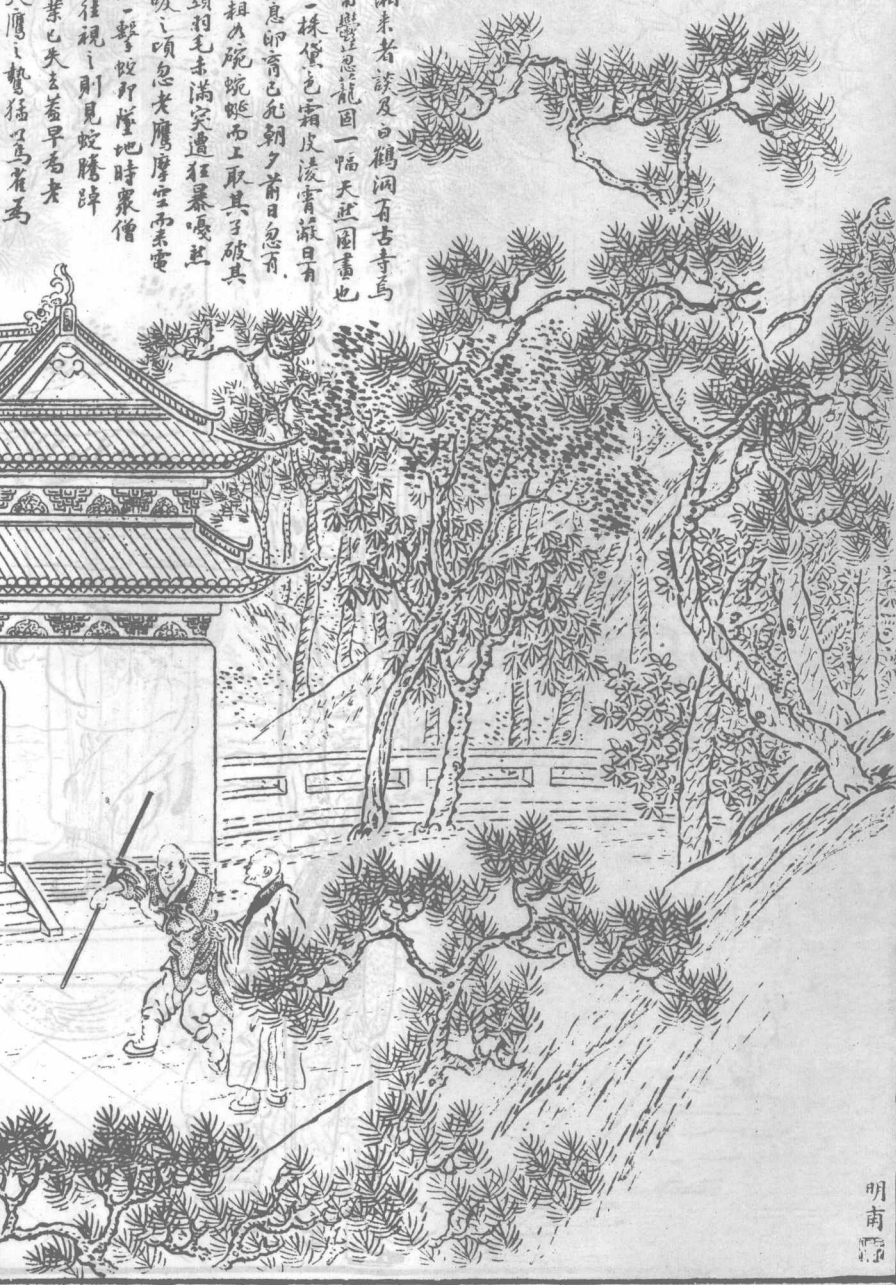 来者談及白鶴洞有古寺焉
龍固一幅天然圖畫也
一株黛色霜皮淩霄蔽日有
息卵育已非朝夕前日忽有
粗如碗蜿蜒而上取其子破其
羽毛未滿突遭狂暴嘎然
之頃忽老鷹摩空而來電
一擊蛇即墜地時衆僧
往視之則見蛇騰踔
業已失去蓋早為老
鷹之鷙猛以為雀焉
明甫